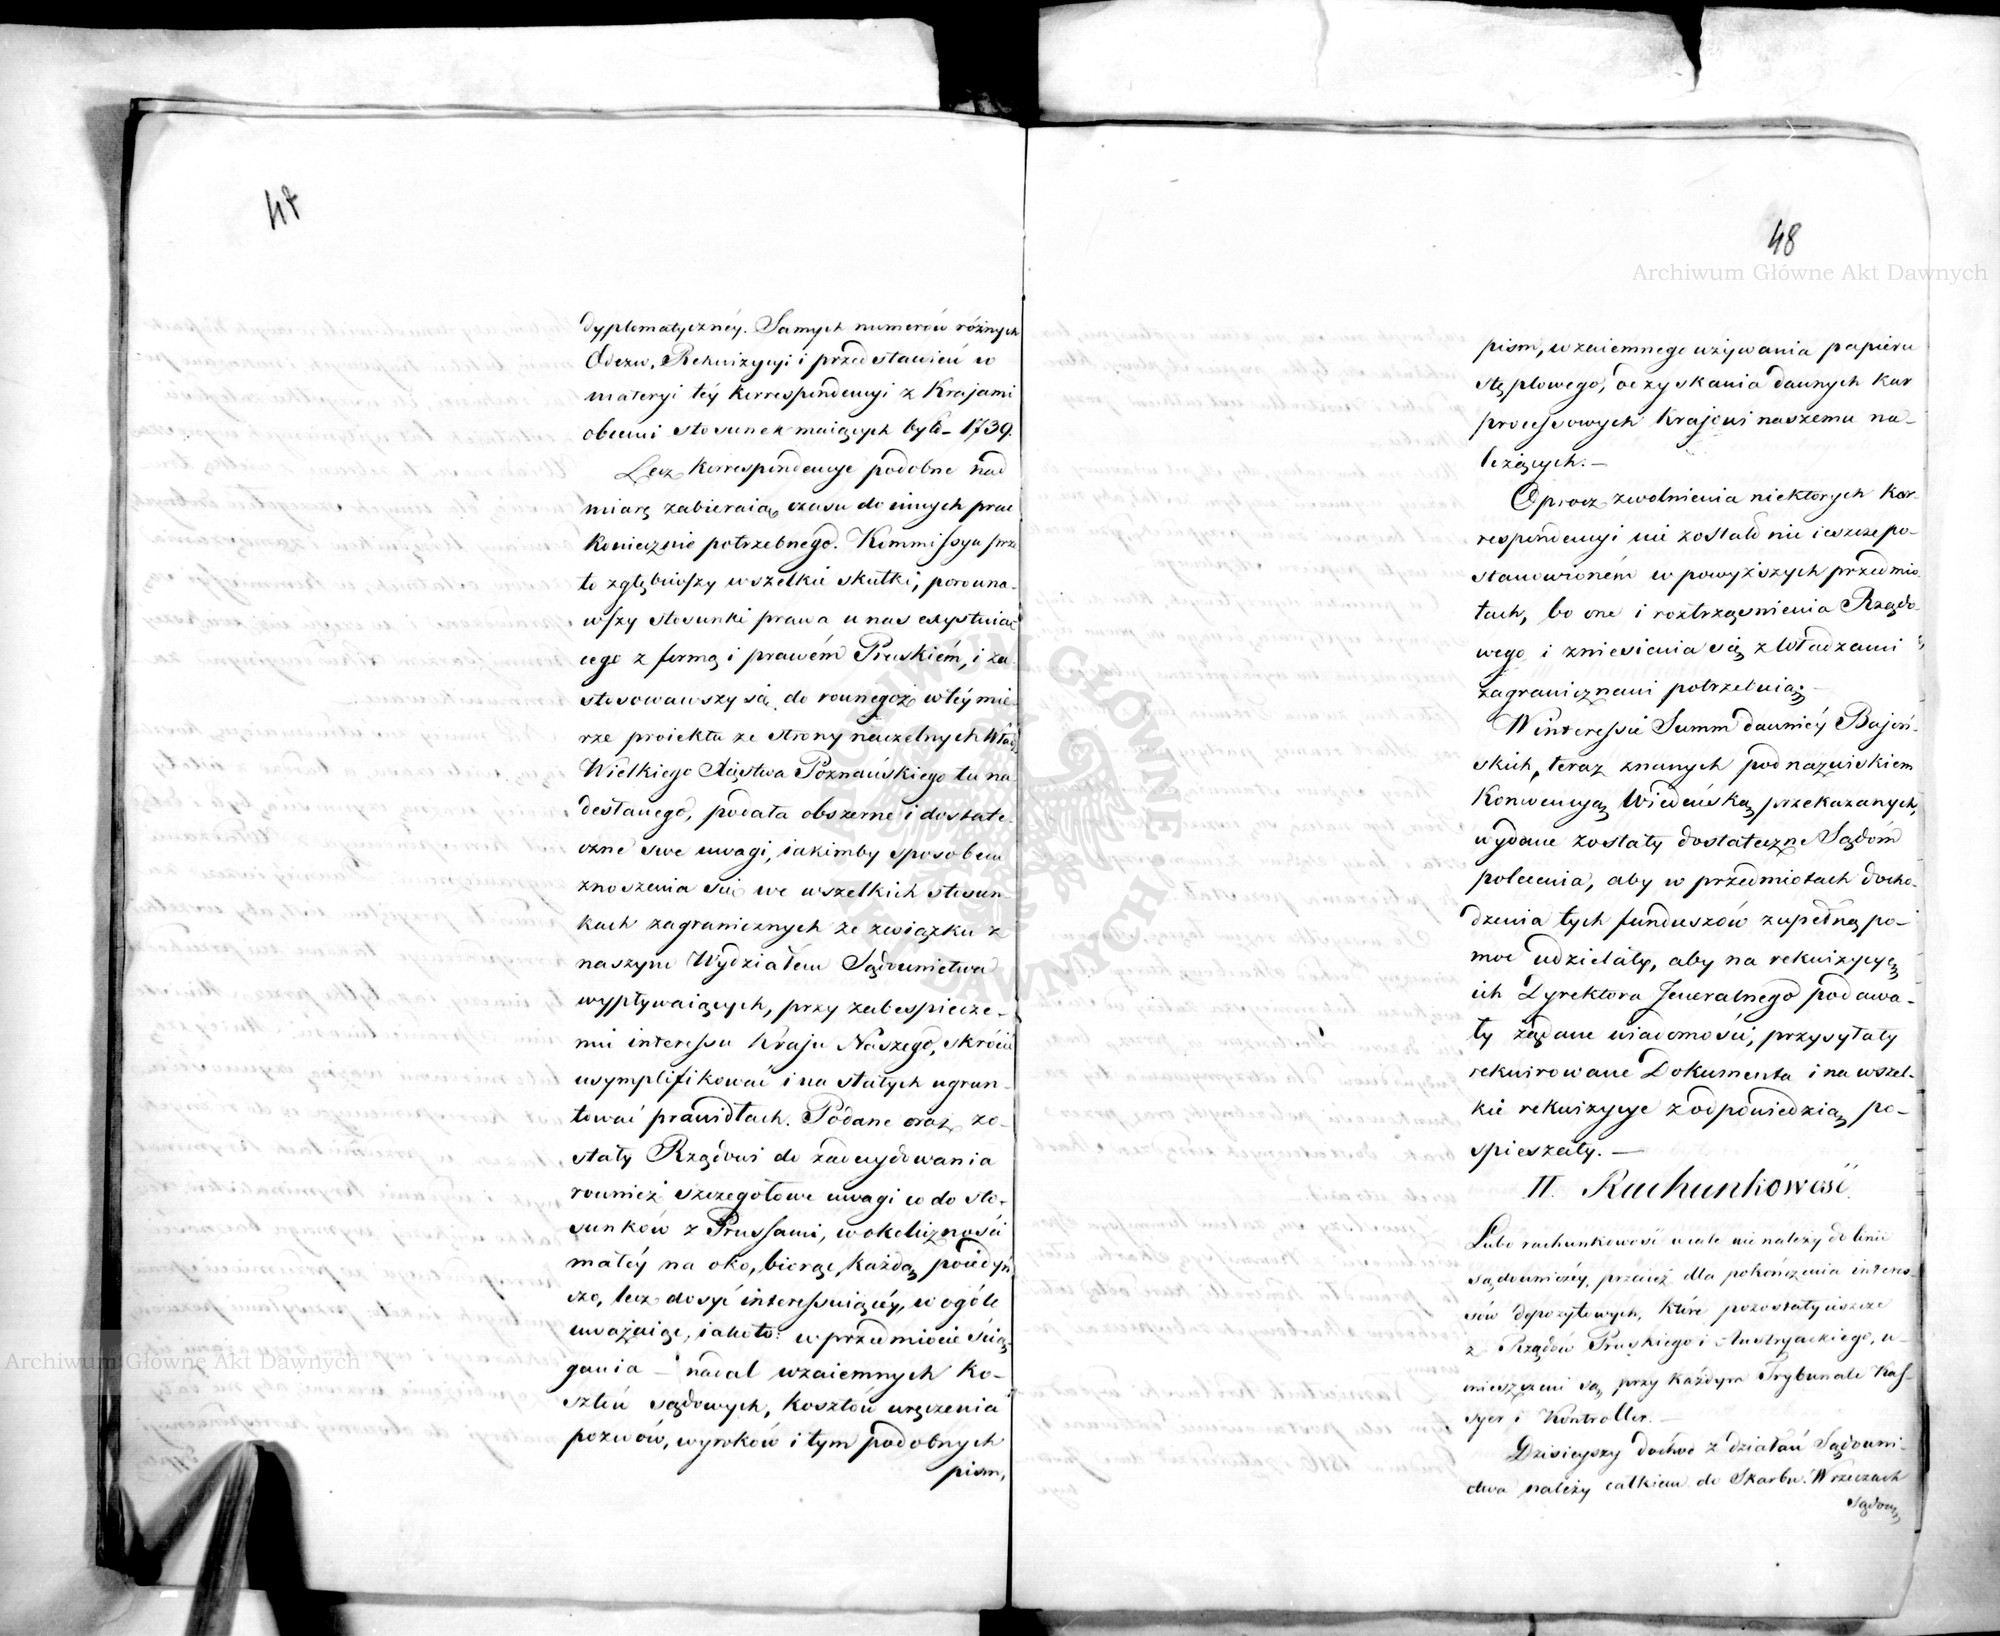 47
dyplomatycznéy. Samych numerów różnych
Odezw, Rekwizycyi i przedstawień w
materyi téy korrespondencyi z Krajami
obcemi stosunek maiących było 1739.
Lecz korrespondencye podobne nad
miarę zabieraią czasu do innych prac
koniecznie potrzebnego. Kommissya prze
to zgłębiwszy wszelkie skutki, porówna-
wszy stosunki prawa u nas exystuiac
cego z formą i prawém Pruskiém, i za
stosowawszy się do rownegoż w téy mie-
rze proiektu ze strony naczelnych Władz
Wielkiego Xięstwa Poznańskiego tu na
desłanego, podała obszerne i dostate-
czne swe uwagi, iakimby sposobem
znoszenia się we wszelkich stosun-
kach zagranicznych ze związku z
naszym Wydziałem Sądownictwa
wypływaiących, przy zabespiecze-
niu interessu Kraju Naszego, skrócić
usymplifikować i na stałych ugrun-
tować prawidłach. Podane oraz zo-
stały Rządowi do zadecydowania
rownież szczegołowe uwagi co do sto-
sunków z Prussami, w okoliczności
małéy na oko, biorąc każdą poiedyń
czo, lecz dosyć interessuiącéy, w ogóle
uważaiąc, iakoto: w przedmiocie ścią-
gania – nadal wzaiemnych ko-
sztów sądowych, kosztów wręczenia
pozwów, wyroków i tym podobnych
pism,
48
Archiwum Główne Akt Dawnych
pism, wzaiemnego używania papieru
stęplowego, odzyskania dawnych kar
processowych Krajowi naszemu na-
leżących. –
Oprocz zwolnienia niektorych kor-
respondencyi nie zostało nic ieszcze po-
stanowioném w powyższych przedmio
tach, bo one i roztrząśnienia Rządo-
wego i zniesienia się z Władzami
zagranicznemi potrzebuią. –
W interessie Summ dawniéy Bajoń-
skich, teraz znanych pod nazwiskiem
Konwencyą Wiedeńską przekazanych,
wydane zostały dostateczne Sądom
polecenia, aby w przedmiotach docho-
dzenia tych funduszów zupełną po-
moc udzielały, aby na rekwizycyą
ich Dyrektora Jeneralnego podawa-
ły żądane wiadomości, przysyłały
rekwirowane Dokumenta i na wszel-
kie rekwizycye z odpowiedzią po-
spieszały. –
II. Rachunkowość.
Lubo rachunkowość wcale nie należy do linii
sądowniczéy, przecież dla pokończenia interes-
sów depozytowych, które pozostały ieszcze
z Rządów Pruskiego i Austryackiego, u-
mieszczeni są przy każdym Trybunale Kas-
syer i Kontroller. –
Dzisieyszy dochod z działań Sądowni-
ctwa należy całkiem do Skarbu. W rzeczach
sądow
Archiwum Główne Akt Dawnych
ARCHIWUM GŁÓWNE AKT DAWNYCH